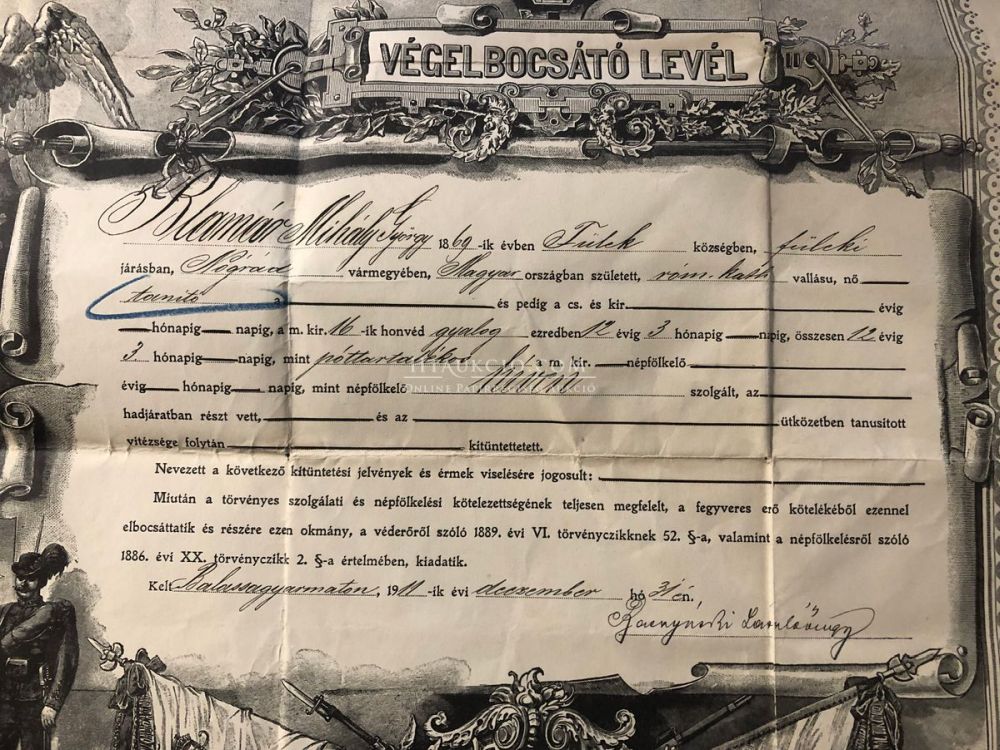 VÉGELBOCSÁTÓ LEVÉL
Mihály György 1869-ik évben Fülek községben, füleki
járásban, Nógrád vármegyében, Magyar országban született, róm. kath. vallásu, nő
tanitó a és pedig a cs. és kir. évig
hónapig napig, a m. kir. 16-ik honvéd gyalog ezredben 12 évig 3 hónapig napig, összesen 12 évig
3. hónapig napig, mint póttartalékos, a m. kir. népfölkelő
évig hónapig napig, mint népfölkelő szolgált, az
hadjáratban részt vett, és az ütközetben tanusitott
vitézsége folytán kitüntettetett.
Nevezett a következő kitüntetési jelvények és érmek viselésére jogosult:
Miután a törvényes szolgálati és népfölkelési kötelezettségének teljesen megfelelt, a fegyveres erő kötelékéből ezennel
elbocsáttatik és részére ezen okmány, a véderőről szóló 1889. évi VI. törvényczikknek 52. §-a, valamint a népfölkelésről szóló
1886. évi XX. törvényczikk 2. §-a értelmében, kiadatik.
Kelt Balassagyarmaton, 1911-ik évi deczember hó 31én.